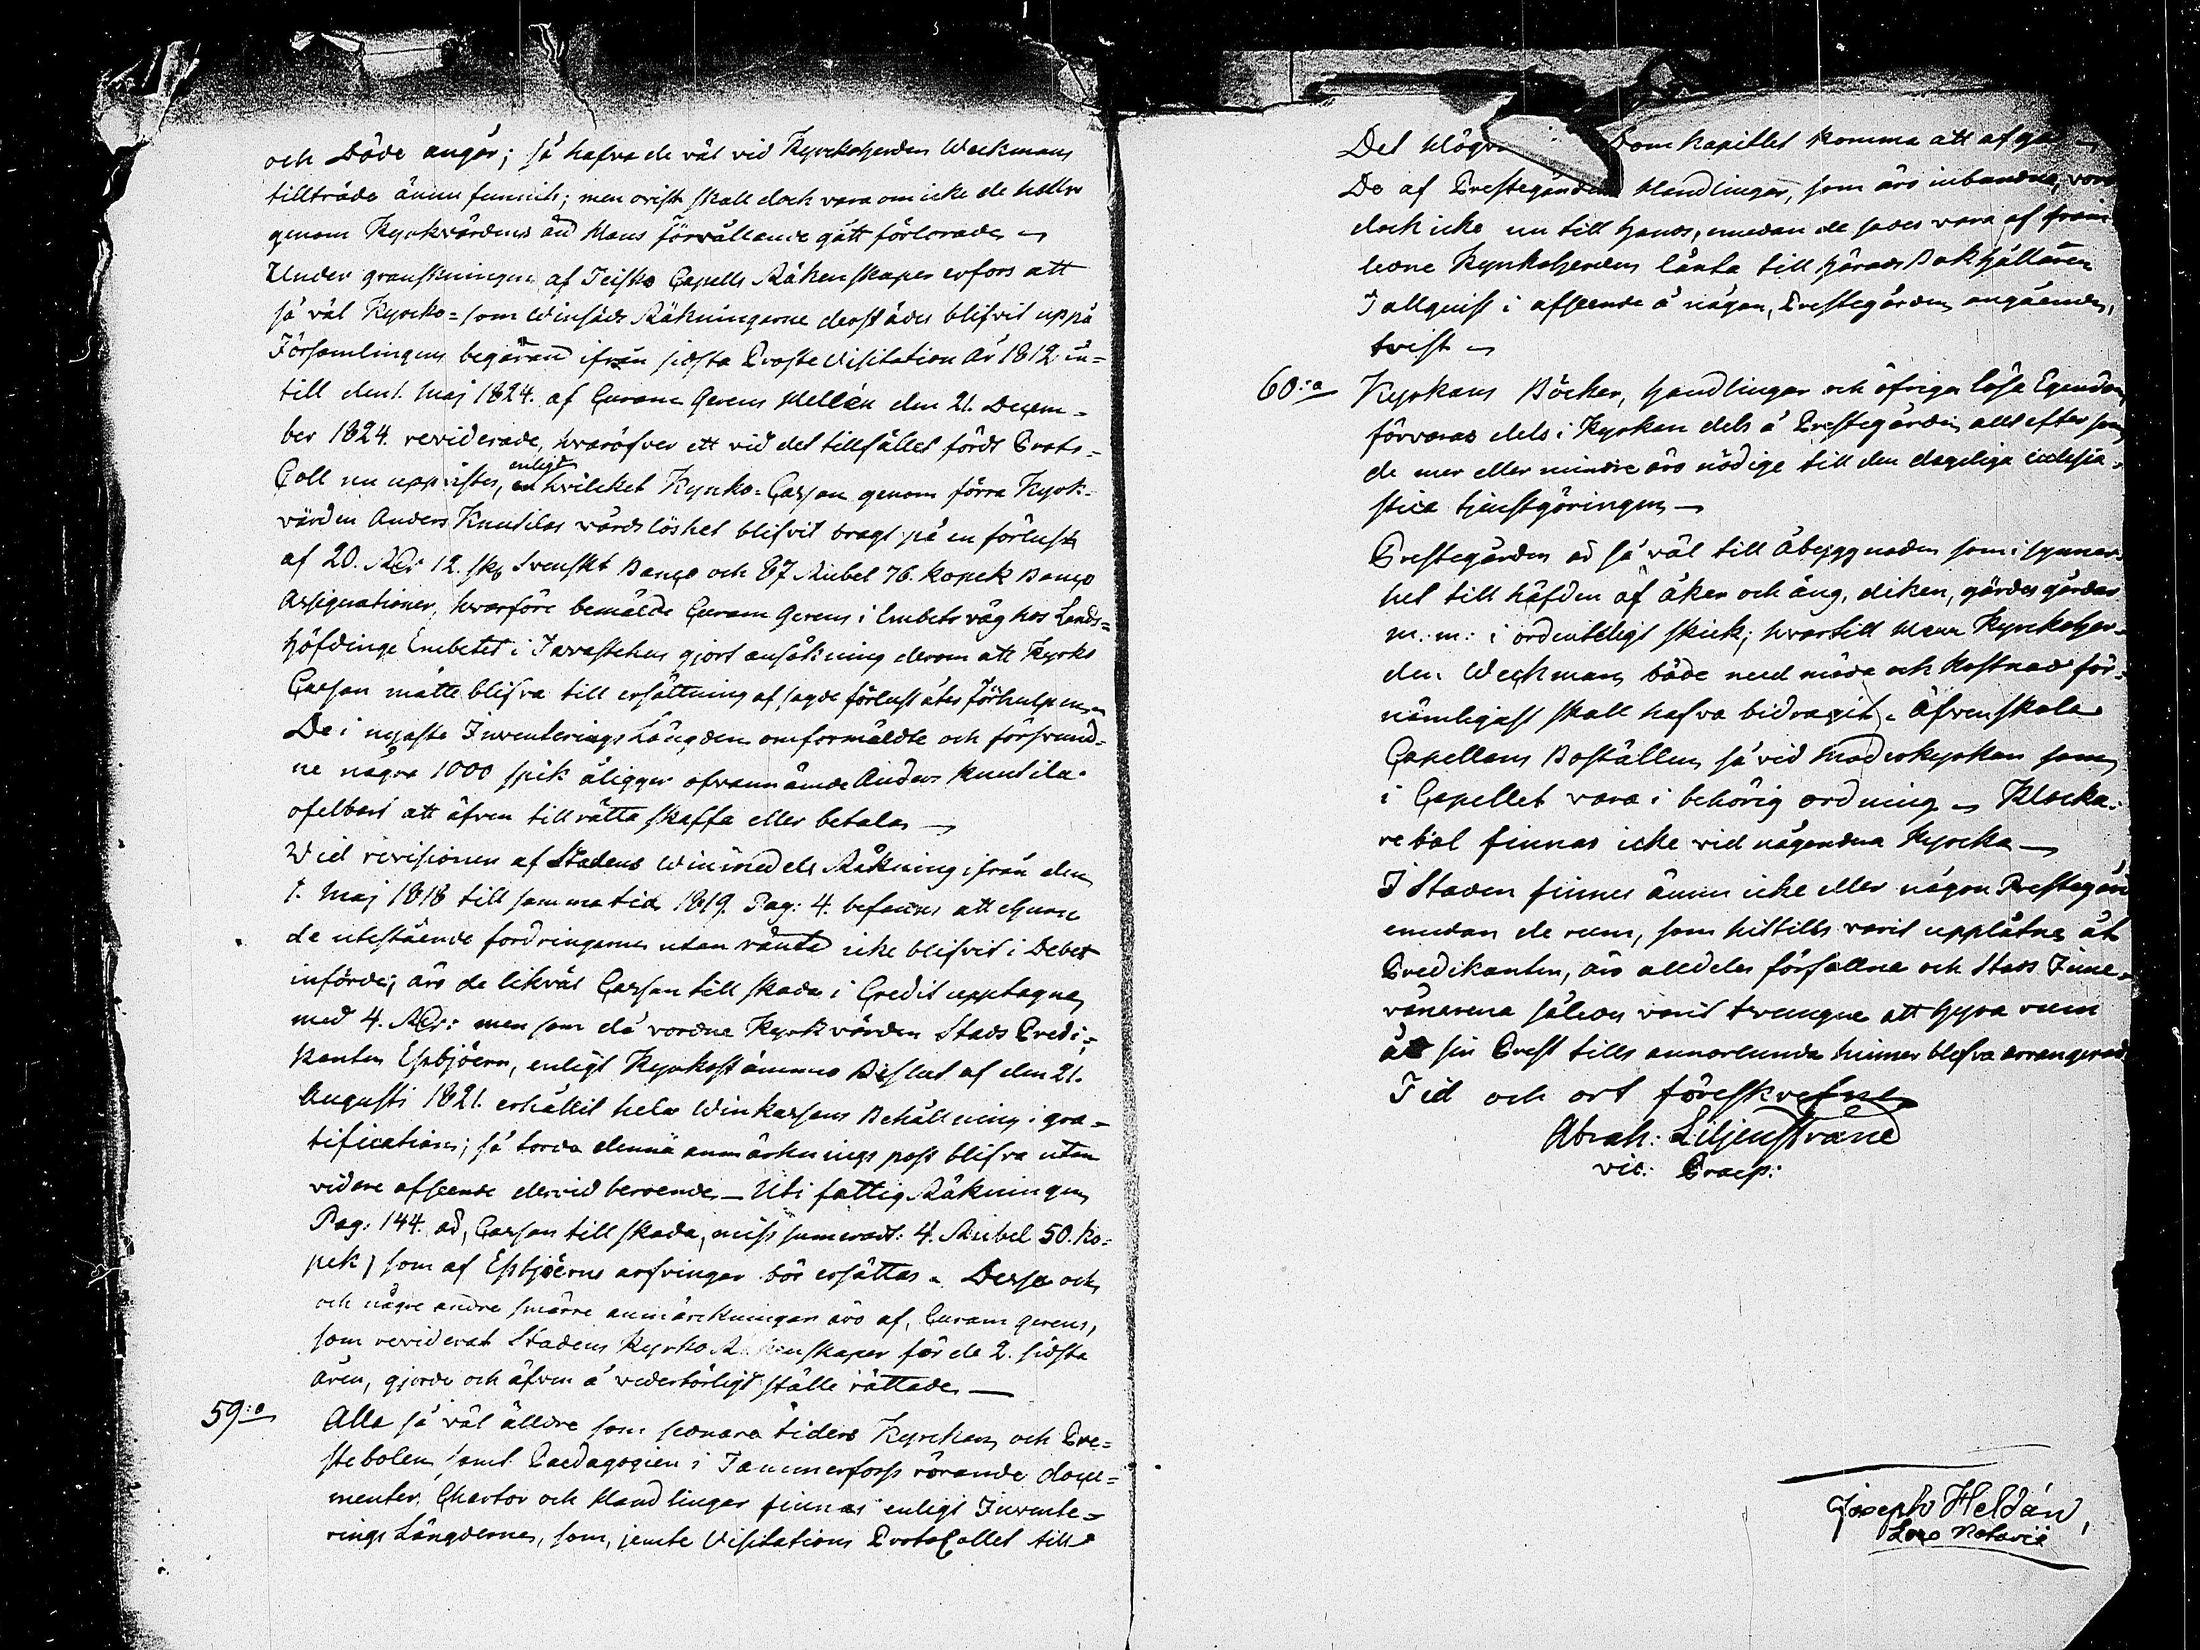 och Döde angår; så hafva de väl vid Kyrckoherden Weckmans
tillträde ännu funnits; men ovist skall dock vara om icke de
genom Kyrkvärdens Hans förvållande gått förlorade
Under granskningen af Teisko Capells Räkenskaper erfors att
så väl Kyrcko= som Winsäds Räkningarne derstädes blifvit uppå
Församlingens begäran ifrån sidsta Proste Visitation År 1812 in=
till den 1. Maj 1824. af Curam Gerens Mellén den 21. Decem=
ber 1824. reviderade, hvaröfver ett vid det tillfället fördt Proto=
Coll nu uppvistes, enligt hvilcket Kyrcko=Cassan genom förra Kyrk=
värden Anders Knutilas vårdslöshet blifvit bragt på en förlust
af 20. RDr 12. sk. Svenskt Banco och 87 Rubel 76. kopek Banco
Assignationer, hvarföre bemälde Curam Gerens i Embets väg hos Lands=
höfdinge Embetet i Tavastehus gjort ansökning derom att Kyrko
Cassan måtte blifva till ersättning af sagde förlust åter förhulpen
De i nyaste Inventerings Längden omförmäldte och försvund=
ne några 1000 spik åligger ofvannämde Anders Knutila
ofelbart att äfven tillrätta skaffa eller betala
Vid revisionen af Stadens Winmedels Räkning ifrån den
1. Maj 1818 till samma tid 1819. Pag: 4. befanns att ehuru
de utestående fordringarne utan ränta icke blifvit i Debet
införde; äro de likväl Cassan till skada i Credit upptagne
med 4. RDr: men som då vordne Kyrkvärden Stads Predi=
kanten Essbjöern, enligt Kyrkostämmo Beslut af den 21.
Augusti 1821. erhållit hela Winkassans Behållning i gra=
tification; så torde denna anmärknings post blifva utan
vidare afseende dervid beroende — Uti fattig Räkningen
Pag: 144. är, Cassan till skada, miss sumerat: 4. Rubel 50. ko=
pek, som af Essbjöerns arfvingar bör ersättas. Dessa och
och någre andre smärre anmärckningar äro af, Curam gerens,
som reviderat Stadens Kyrko Räkenskaper för de 2. sidsta
åren, gjorde och äfven å vederbörligt ställe rättade —
59:o Alla så väl äldre som senare tiders Kyrckan och Pre=
stebolen samt Paedagogien i Tammerforss rörande docu=
menter, Chartor och Handlingar finnas enligt Invente=
rings Längderne, som, jemte Visitations ProtoCollet till
Det Högv Dom Kapitlet komma att af
De af Prestegården Handlingar, som äro inbundne, voro
dock icke nu till hands, emedan de sades vara af fram
ledne Kyrkoherden lånta till Härads Bokhållaren
Tallquist i afseende å någon, Prestegården angående,
tvist
60:o Kyrkans Böcker, Handlingar och öfriga lösa Egendom,
förvaras dels i Kyrkan dels å Prestegården allt efter som
de mer eller mindre äro nödige till den dageliga ecclesia=
stica tjenstgöringen —
Prestegården är så väl till åbyggnaden som i synner=
het till häfden af åker och äng, diken, gärdesgårdar
m. m: i ordenteligt skick; hvartill Herr Kyrckoher=
den Weckman både med möda och kostnad för=
nämligast skall hafva bidragit. Äfven skola
Capellans Boställen så vid Moderkyrkan som
i Capellet vara i behörig ordning — Klocka=
rebol finnas icke vid någondera Kyrcka —
I Staden finnes ännu icke eller någon Prestegård
emedan de rum, som hittills varit upplåtne åt
Predikanten, äro alldeles förfallne och Stads Inne=
vånarena således varit tvungne att hyra rum
åt sin Prest tills annorlunda hinner blefva arrangerad
Tid och ort föreskrefne
Abrah: Liljenstrand
vic: Praep:
Joseph Heldán,
Loco Notarii